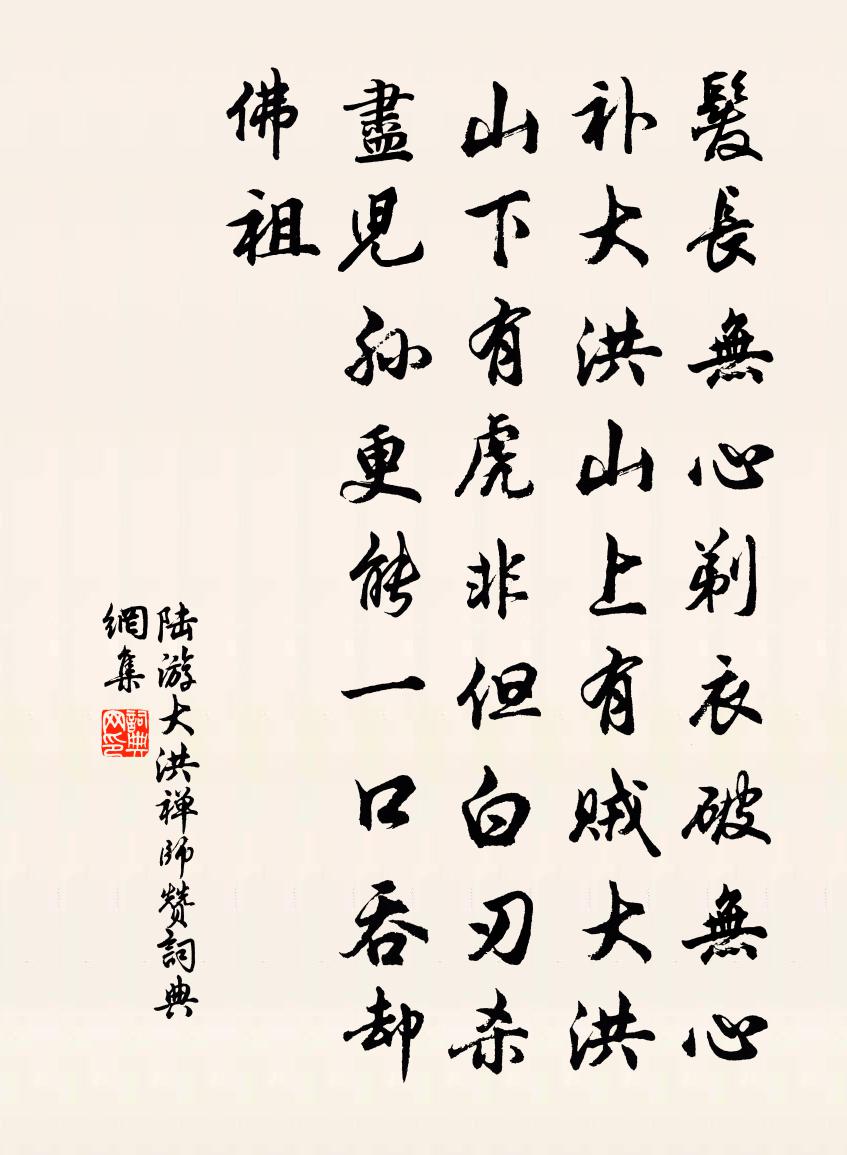 髮長無心剃衣破無心
补大洪山上有贼大洪
山下有虎非但白刃杀
盡児孙更能一口吞却
佛祖
陆游大洪禅师赞詞典
網集
詞典
网印